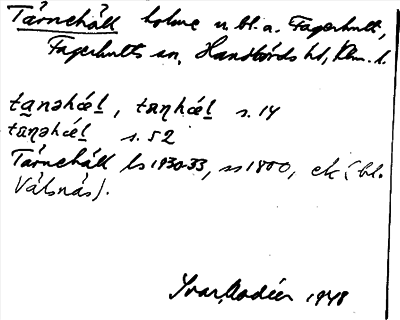 Tärnehäll holme n. bl. a. Fagerhult,
Fagerhults sn, Handbörds hd, Klm. l.
tạṇəhɶḷ, tɐṇhɶ́ḷ s. 14
tạṇəhɶ́ḷ s. 52
Tärnehäll ls 1930-33, ss 1800, ek (bl.
Välsnäs).
Yvar 1948